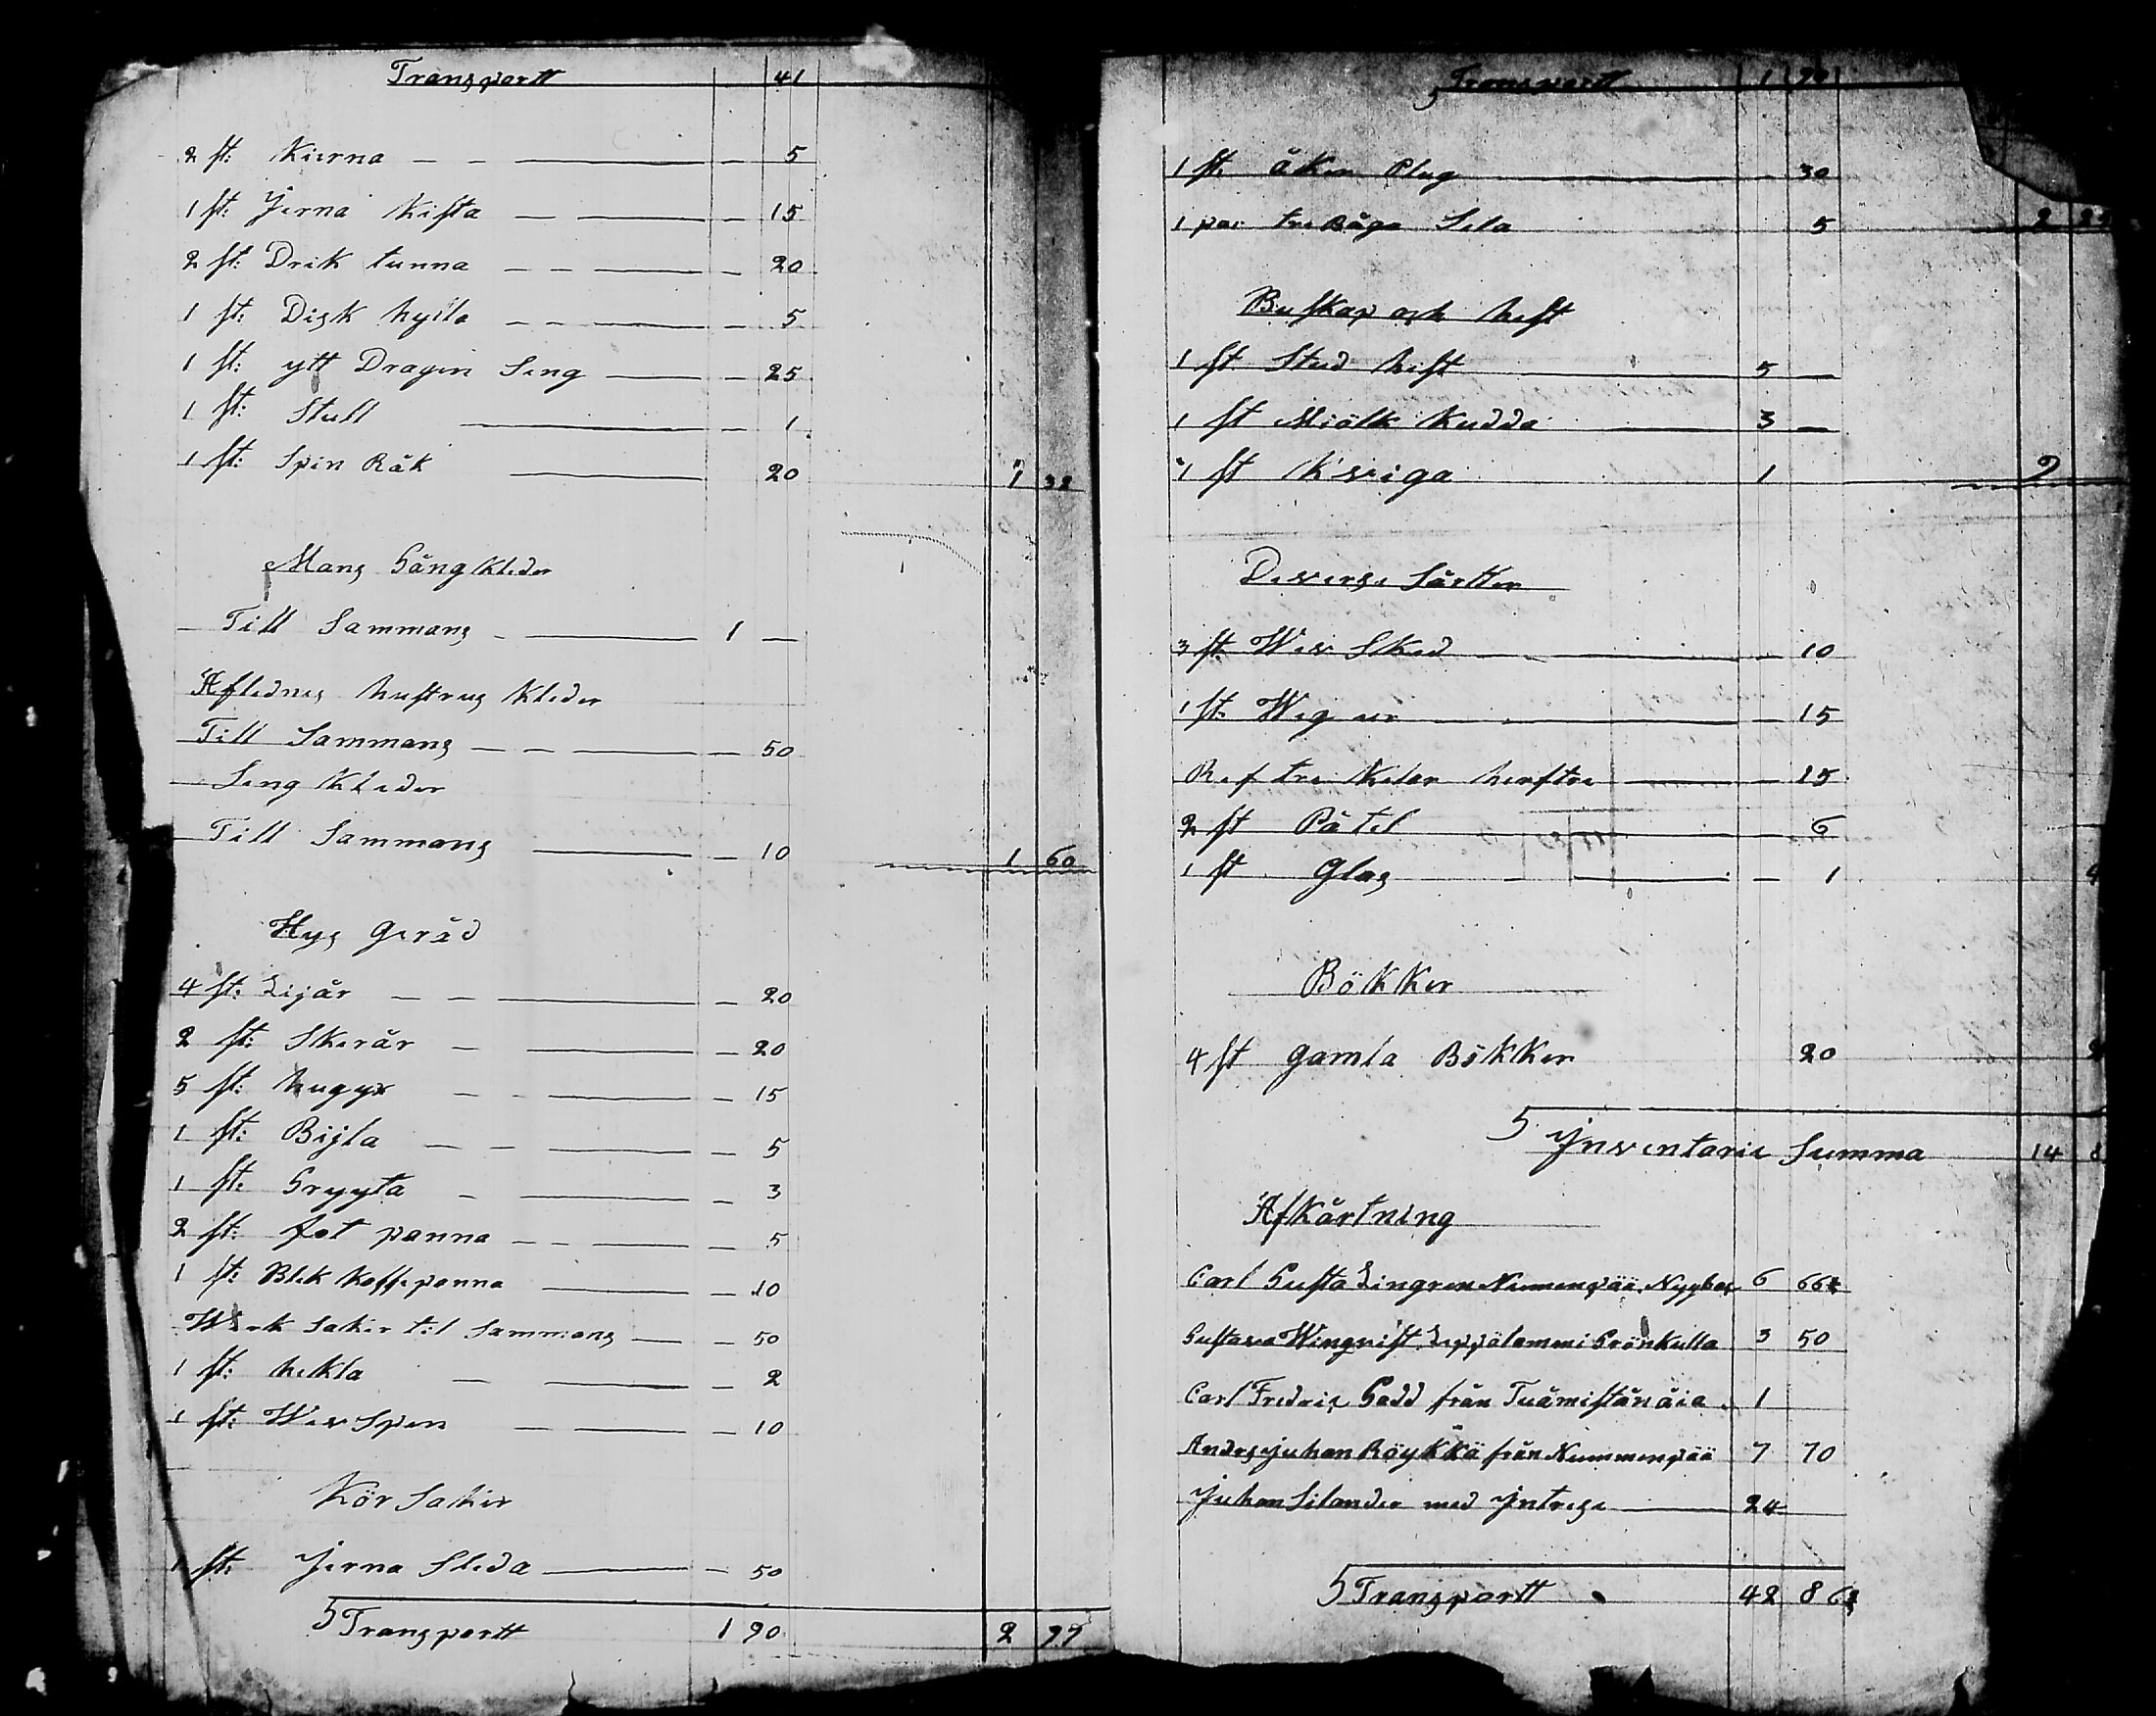 Transportt 41
2 st: Kierna 5
1 st: Jerna Kista 15
2 st: Drik tunna 20
1 st: Disk hylla 5
1 st: ytt Dragen Seng 25
1 st: Stull 1
1 st: Spin Råk 20 1 32
Mans Gångkleder
Till Sammans 1
Aflednes hustrus Kleder
Till Sammans 50
Seng Kleder
Till Sammans 10 1 60
Hus Geråd
4 st: Lijår 20
2 st: Skerår 20
5 st: hugyx 15
1 st: Bijla 5
1 st: Gryyta 3
2 st: fot panna 5
1 st: Blek Koffepanna 10
Werk Saker til Sammans 50
1 st: hekla 2
1 st: Wev Spen 10
Kör Saker
1 st: Jerna Sleda 50
Transportt 1 90 2 99
Transportt 1 90
1 st: åker Plug 30
1 par tre Båga Sela 5 2 25
Buskap och hest
1 st Stud hest 5
1 st Miölk Kudda 3
1 st Kviga 1 9
Deverse Sårtter
3 st Wev Sked 10
1 st: Weg ur 15
Ref tre Kelar herftre 15
2 st Påtel 6
1 st Glas 1 4
Bökker
4 st gamla Bökker 20 2
Ynventarie Summa 14 8
Afkårtning
Carl Gusta Lingren Nummenpää Nygbes 6 66
Gustava Winqvist Leppälammi Grönkulla 3 50
Carl Fredric Gadd från Tuåmistånåia 1
Andesjuhan Röykkä från Nummenpää 7 70
Juhan Silander med Yntrese 24
Transportt 42 86